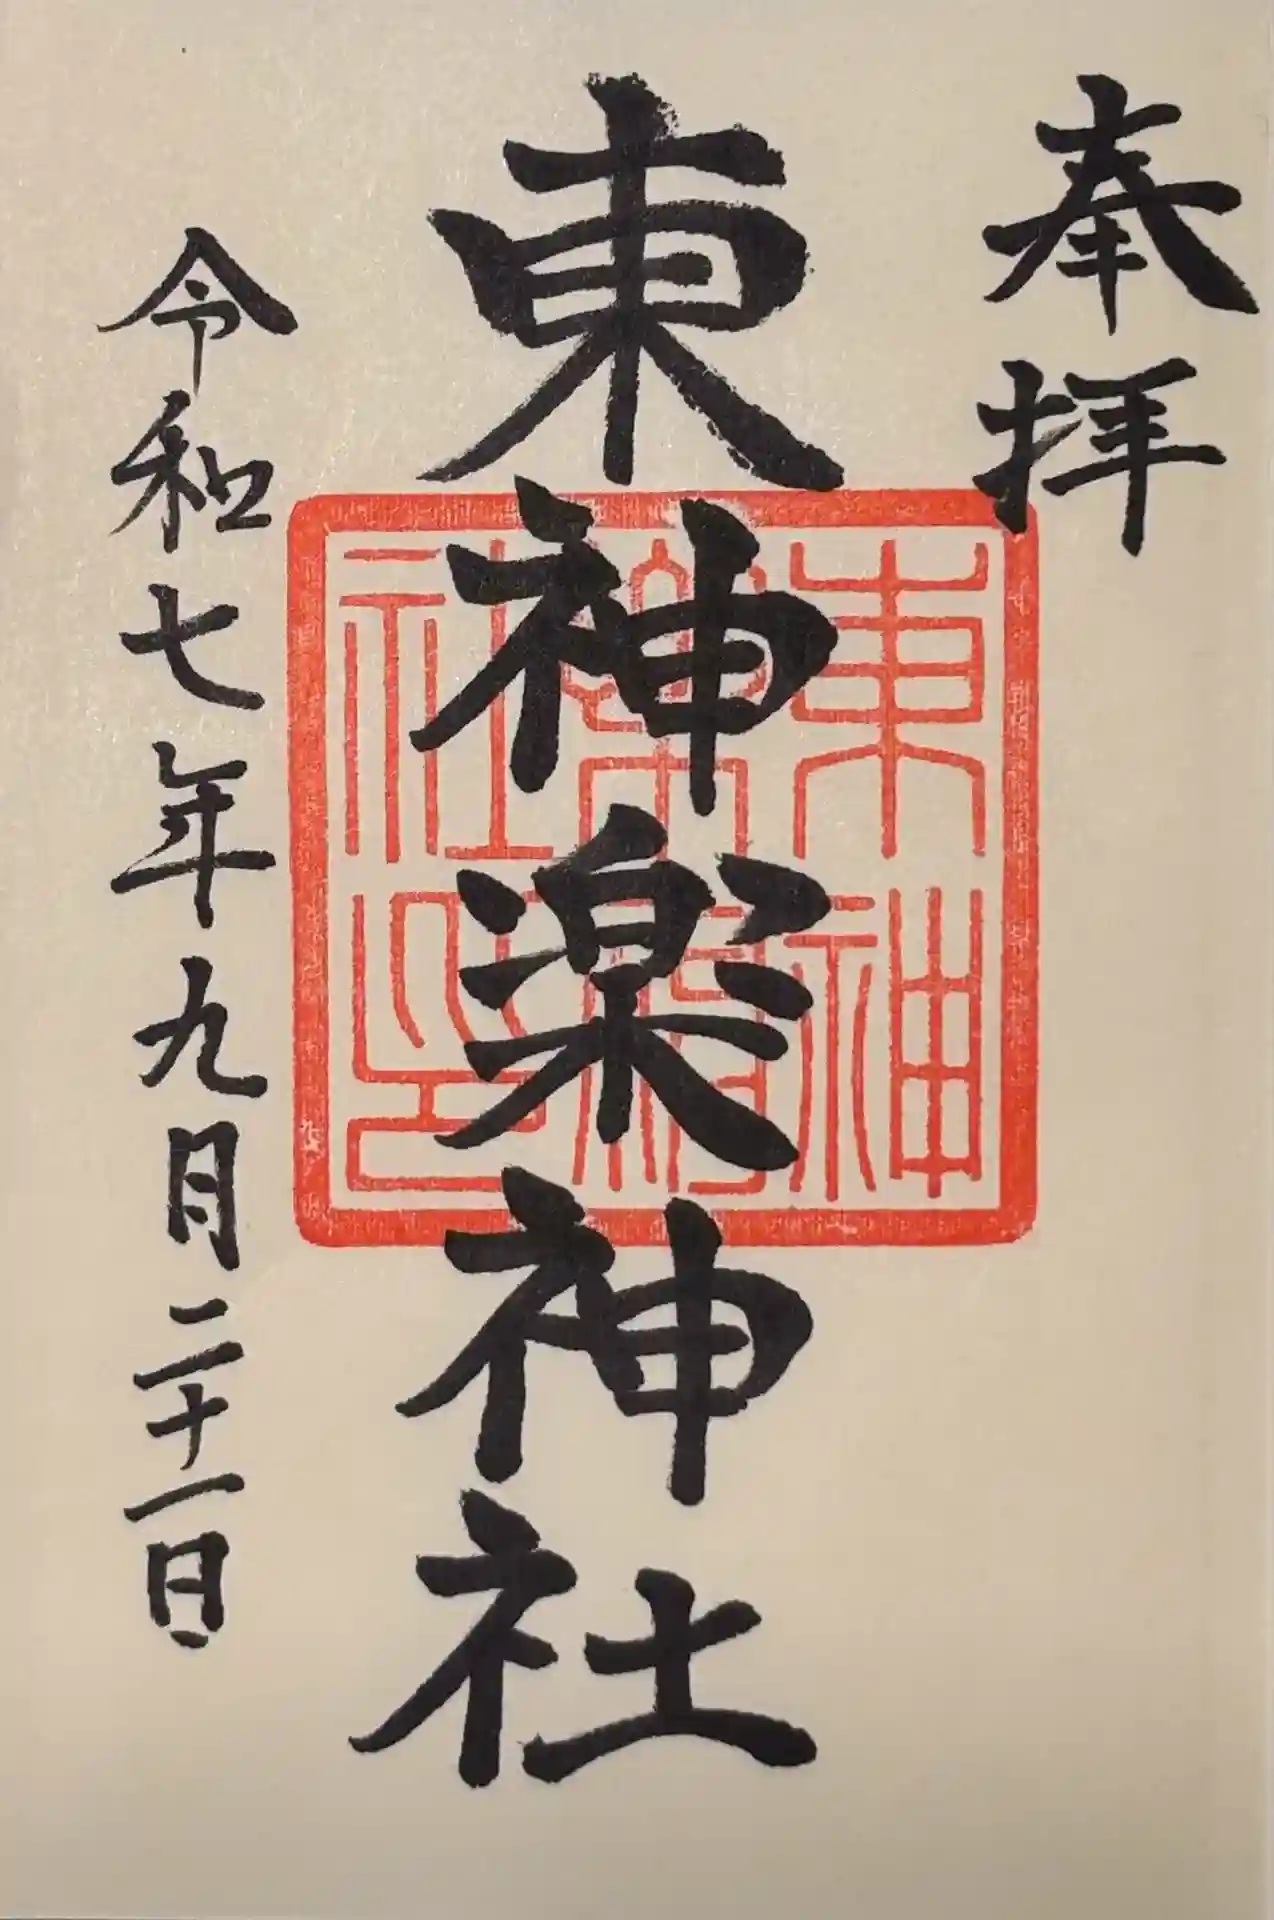 奉拝
東神楽神社
東神
樂神
社印
令和七年九月二十一日